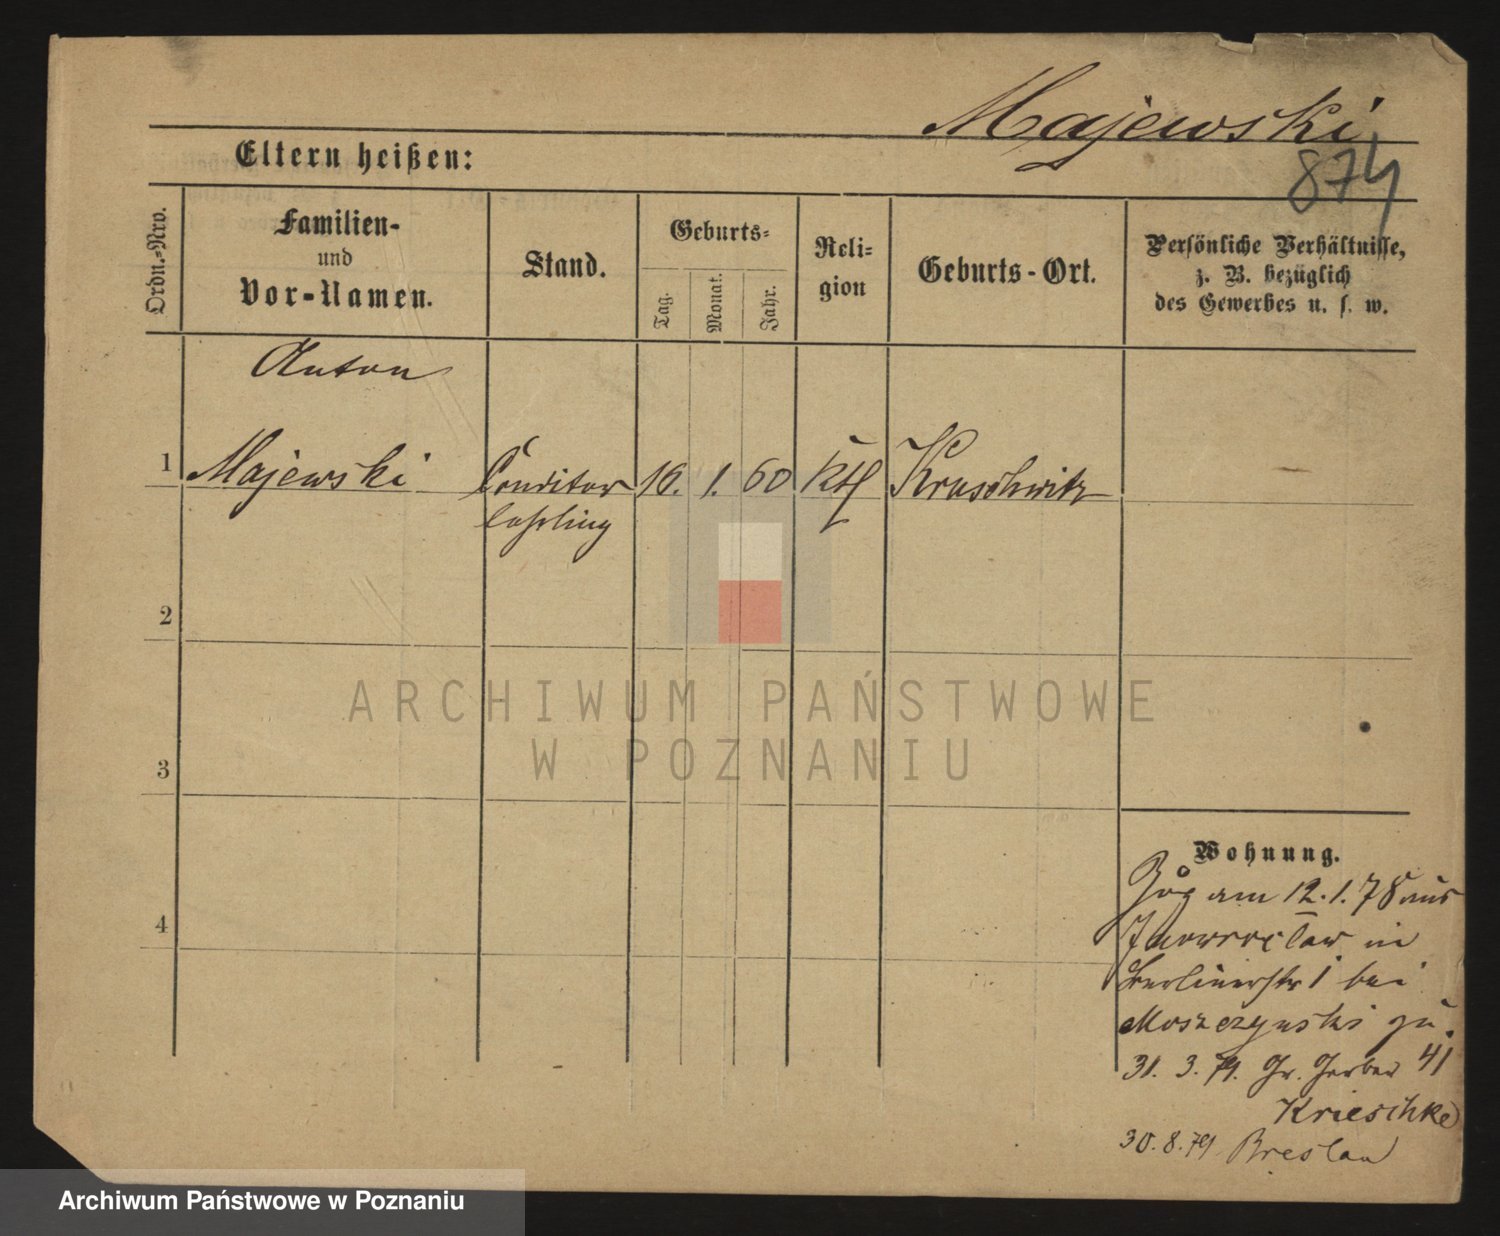 Majewski
874
Eltern heißen:
Ordn.-Nro.
Familien-
und
Vor-Namen.
Stand.
Geburts-
Tag.
Monat.
Jahr.
Reli-
gion
Geburts-Ort.
Persönliche Verhältnisse,
z. B. bezüglich
des Gewerbes u. s. w.
Anton
1 Majewski Conditor 16. 1. 60 Kth Kruschwitz
lehrling
2
3
4
ARCHIWUM PAŃSTWOWE
W POZNANIU
Wohnung.
Zog am 12.1.78 aus
Inowroclaw in
Berlinerstr 1 bei
Moszczynski zu.
31. 3. 79. Gr. Gerber 41
Krieschke
30.8.79 Breslau
Archiwum Państwowe w Poznaniu